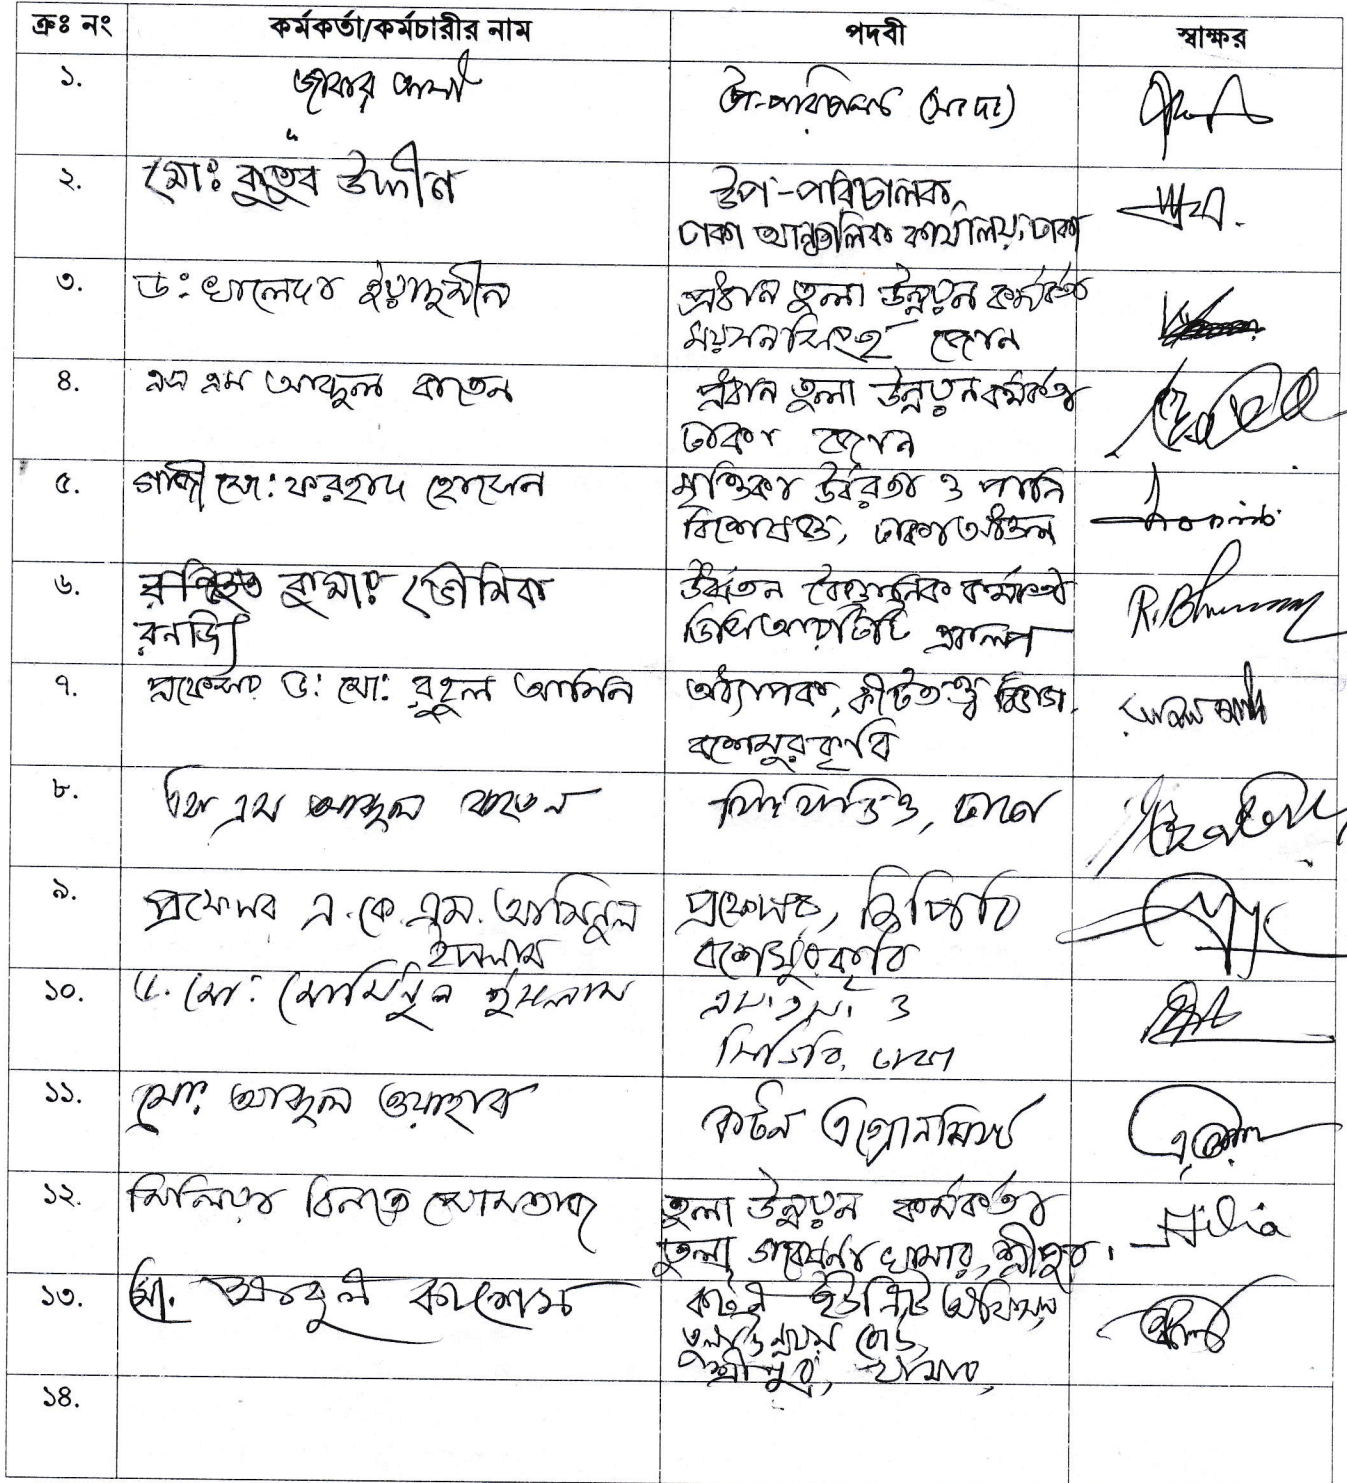 ক্রঃ নং কর্মকর্তা/কর্মচারীর নাম পদবী স্বাক্ষর
১. উপ-পরিচালক (সঃ দঃ)
২. মোঃ কুতুব উদ্দীন উপ-পরিচালক,
ঢাকা আঞ্চলিক কার্যালয়, ঢাকা
৩. ড: খালেদা ইয়াছমীন প্রধান তুলা উন্নয়ন কর্মকর্তা
ময়মনসিংহ জোন
৪. এস এম আবদুল বাতেন প্রধান তুলা উন্নয়ন কর্মকর্তা
ঢাকা জোন
৫. গাজী মো: ফরহাদ হোসেন মৃত্তিকা উর্বরতা ও পানি
বিশেষজ্ঞ, ঢাকা অঞ্চল
৬. কুমার ভৌমিক উর্ধ্বতন বৈজ্ঞানিক কর্মকর্তা
রনজিৎ R. Bhowmik
৭. প্রফেসর ড: মো: রুহুল আমিন অধ্যাপক, কীটতত্ত্ব বিভাগ,
বশেমুরকৃবি
৮. এস এম আব্দুল বাতেন সিসিডিও, ঢাকা
৯. প্রফেসর এ. কে. এম. আমিনুল প্রফেসর, জিপিবি
ইসলাম বশেমুরকৃবি
১০. ড. মো: মোমিনুল ইসলাম
সিডিবি, ঢাকা
১১. মো: আব্দুল ওয়াহাব কটন এগ্রোনমিস্ট
১২. মিলিয়া বিনতে মোমতাজ তুলা উন্নয়ন কর্মকর্তা Milia
তুলা গবেষণা খামার, শ্রীপুর।
১৩. মো. আবুল কাশেম কটন ইউনিট অফিসার,
তুলা উন্নয়ন বোর্ড,
শ্রীপুর, খামার,
১৪.